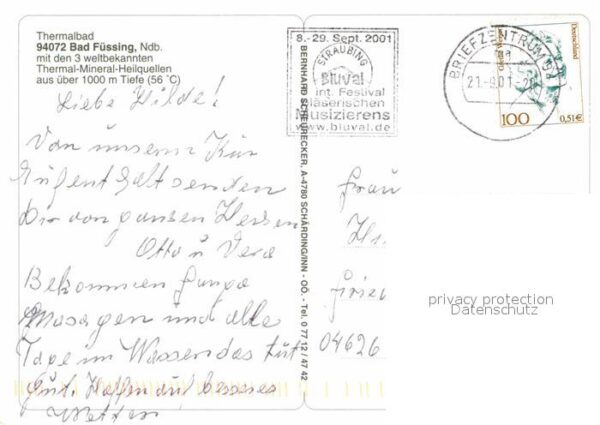 Thermalbad
94072 Bad Füssing, Ndb.
mit den 3 weltbekannten
Thermal-Mineral-Heilquellen
aus über 1000 m Tiefe (56 °C)
Liebe Hilde!
Von unserem Kur
Aufenthalt senden
Dir von ganzen Herzen
Otto u Vera
Bekommen
Masagen und alle
Tage im Wasser das tut
gut. Hoffen auf besseres
Wetter
BERNHARD SCHEURECKER, A-4780 SCHÄRDING/INN - OÖ. - Tel. 0 77 12 / 47 42
8.-29. Sept. 2001
STRAUBING
Bluval
int. Festival
bläserischen
Musizierens
www.bluval.de
BRIEFZENTRUM 94
21.-9.01.-2
Deutschland
100
0,51€
Frau
04626
privacy protection
Datenschutz